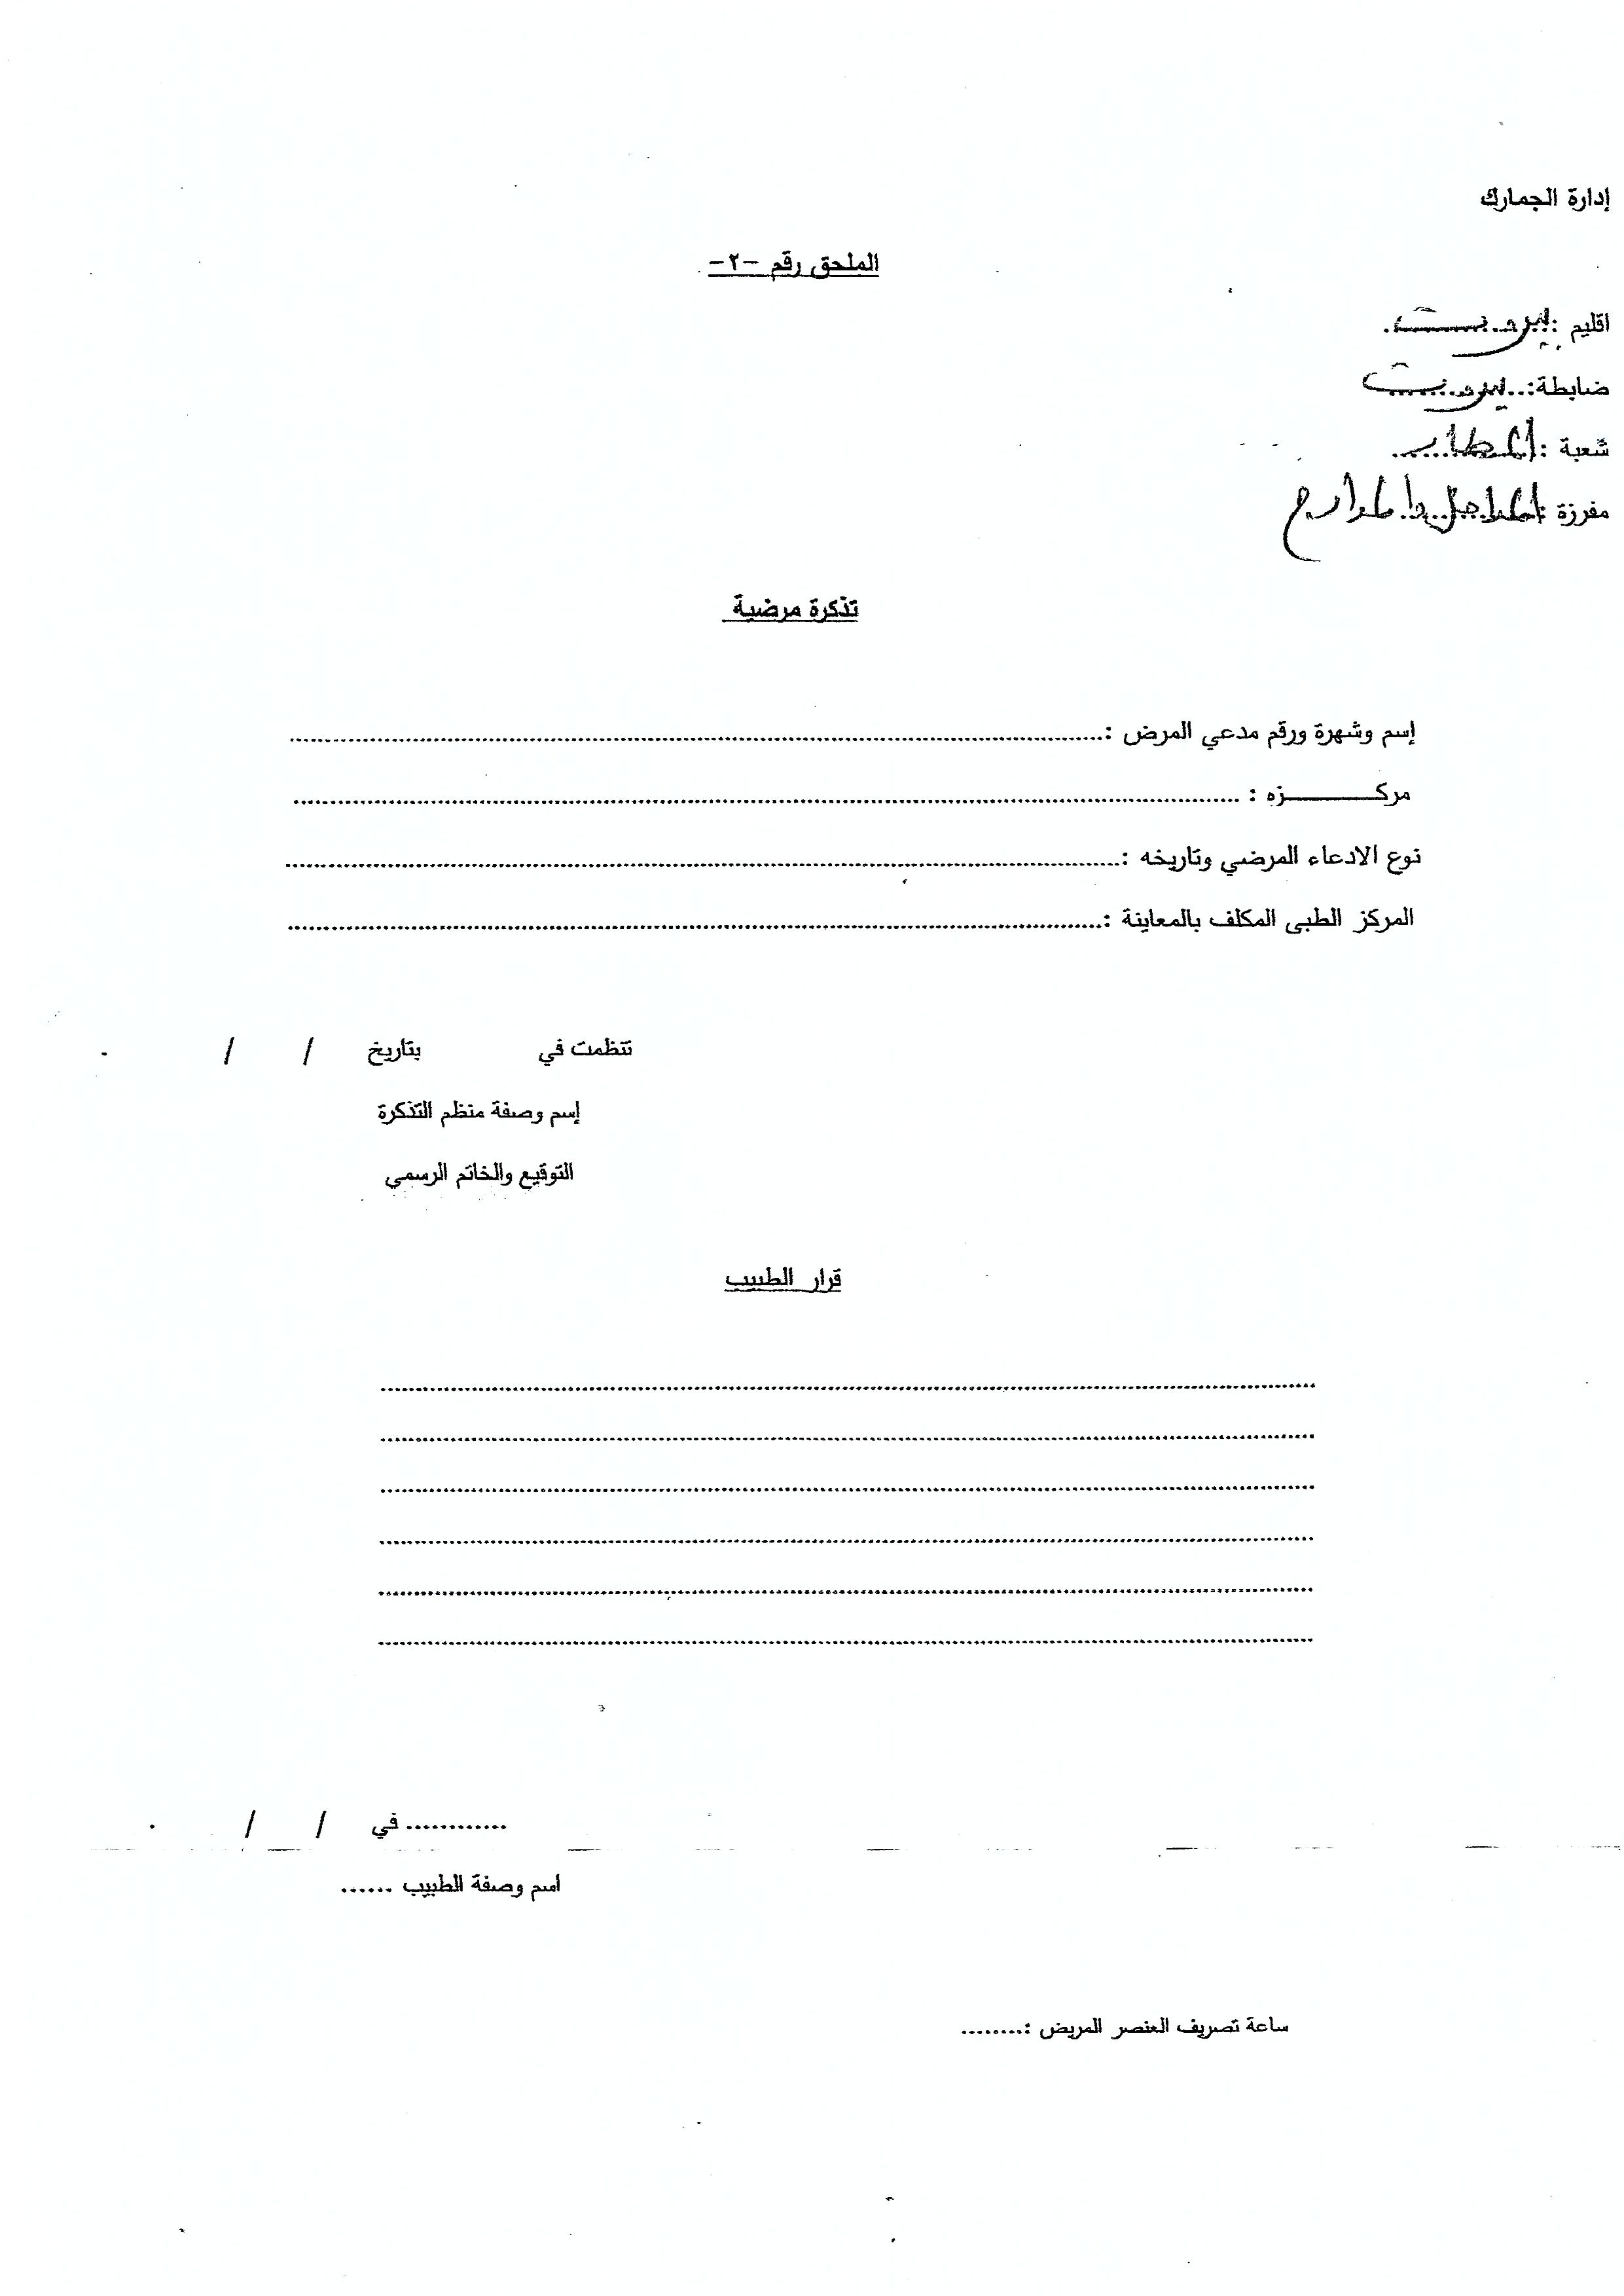 إدارة الجمارك
الملحق رقم -٢-
اقليم : بيروت
ضابطة: بيروت
شعبة : المطار
مفرزة : المداخل والمدارج
تذكرة مرضية
إسم وشهرة ورقم مدعي المرض :
مركـــــزه :
نوع الادعاء المرضي وتاريخه :
المركز الطبي المكلف بالمعاينة :
نتظمت في بتاريخ / / .
إسم وصفة منظم التذكرة
التوقيع والخاتم الرسمي
قرار الطبيب
............ في / / .
اسم وصفة الطبيب ......
ساعة تصريف العنصر المريض :........